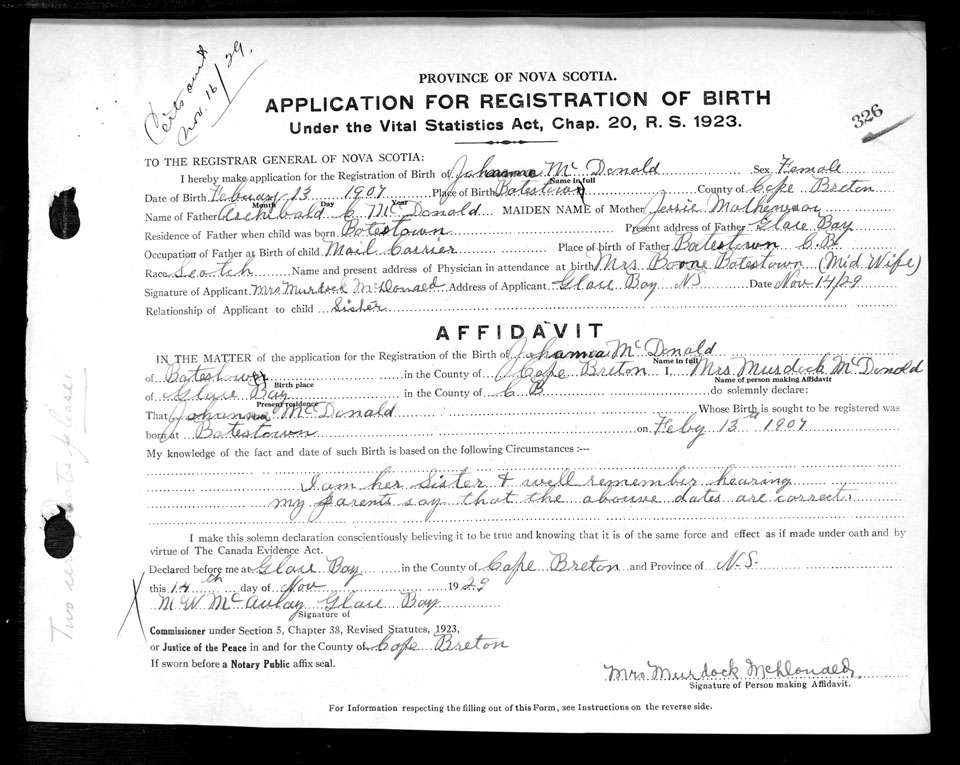 Certs sent
Nov. 16/29.
PROVINCE OF NOVA SCOTIA.
APPLICATION FOR REGISTRATION OF BIRTH
Under the Vital Statistics Act, Chap. 20, R. S. 1923.
326
TO THE REGISTRAR GENERAL OF NOVA SCOTIA:
I hereby make application for the Registration of Birth of Johanna McDonald Sex Female
Name in full
Date of Birth February 13 1907 Place of Birth Batestown County of Cape Breton
Month Day Year
Name of Father Archibald C McDonald MAIDEN NAME of Mother Jessie Matheyson
Residence of Father when child was born Batestown Present address of Father Glace Bay
Occupation of Father at Birth of child Mail Carrier Place of birth of Father Batestown C.B.
Race Scotch Name and present address of Physician in attendance at birth Mrs Boone Batestown (Mid Wife)
Signature of Applicant Mrs Murdock McDonald Address of Applicant Glace Bay NS Date Nov 14/29
Relationship of Applicant to child Sister
AFFIDAVIT
IN THE MATTER of the application for the Registration of the Birth of Johanna McDonald
Name in full
of Batestown in the County of Cape Breton I, Mrs Murdock McDonald
Birth place Name of person making Affidavit
of Glace Bay in the County of C B do solemnly declare:
Present residence
That Johanna McDonald Whose Birth is sought to be registered was
born at Batestown on Feby 13th 1907
My knowledge of the fact and date of such Birth is based on the following Circumstances :---
I am her Sister & well remember hearing
my parents say that the abouve dates are correct.
I make this solemn declaration conscientiously believing it to be true and knowing that it is of the same force and effect as if made under oath and by
virtue of The Canada Evidence Act.
Declared before me at Glace Bay in the County of Cape Breton and Province of N.S.
this 14th day of Nov 1929
M W McAulay Glace Bay
Signature of
Commissioner under Section 5, Chapter 38, Revised Statutes, 1923,
or Justice of the Peace in and for the County of Cape Breton
If sworn before a Notary Public affix seal.
Mrs Murdock McDonald
Signature of Person making Affidavit.
For Information respecting the filling out of this Form, see Instructions on the reverse side.
Two please.